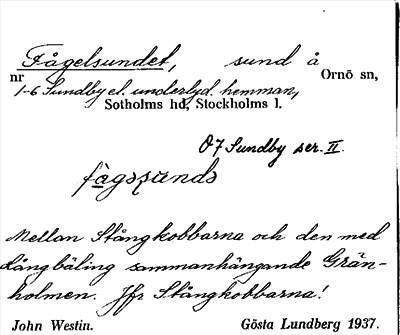 Fågelsundet, sund å Ornö sn,
nr 1-6 Sundby el. underlyd. hemman,
Sotholms hd, Stockholms l.
07 Sundby ser. II.
Mellan Stångkobbarna och den med
Långbäling sammanhängande Grän-
holmen. Jfr Stångkobbarna!
John Westin. Gösta Lundberg 1937.